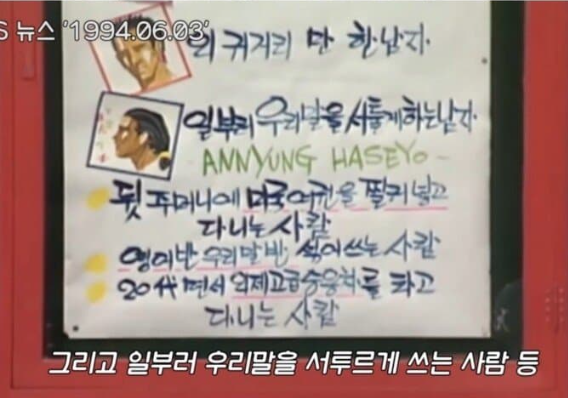 S 뉴스 '1994.06.03'
의 귀걸이 만 한남자.
일부러 우리말을 서툴게하는남자
-ANNYUNG HASEYO~
뒷 주머니에 미국여권을 찔러 넣고
다니는 사람
영어반 우리말반 섞어쓰는 사람
20代면서 외제고급승용차를 타고
다니는 사람
그리고 일부러 우리말을 서투르게 쓰는 사람 등